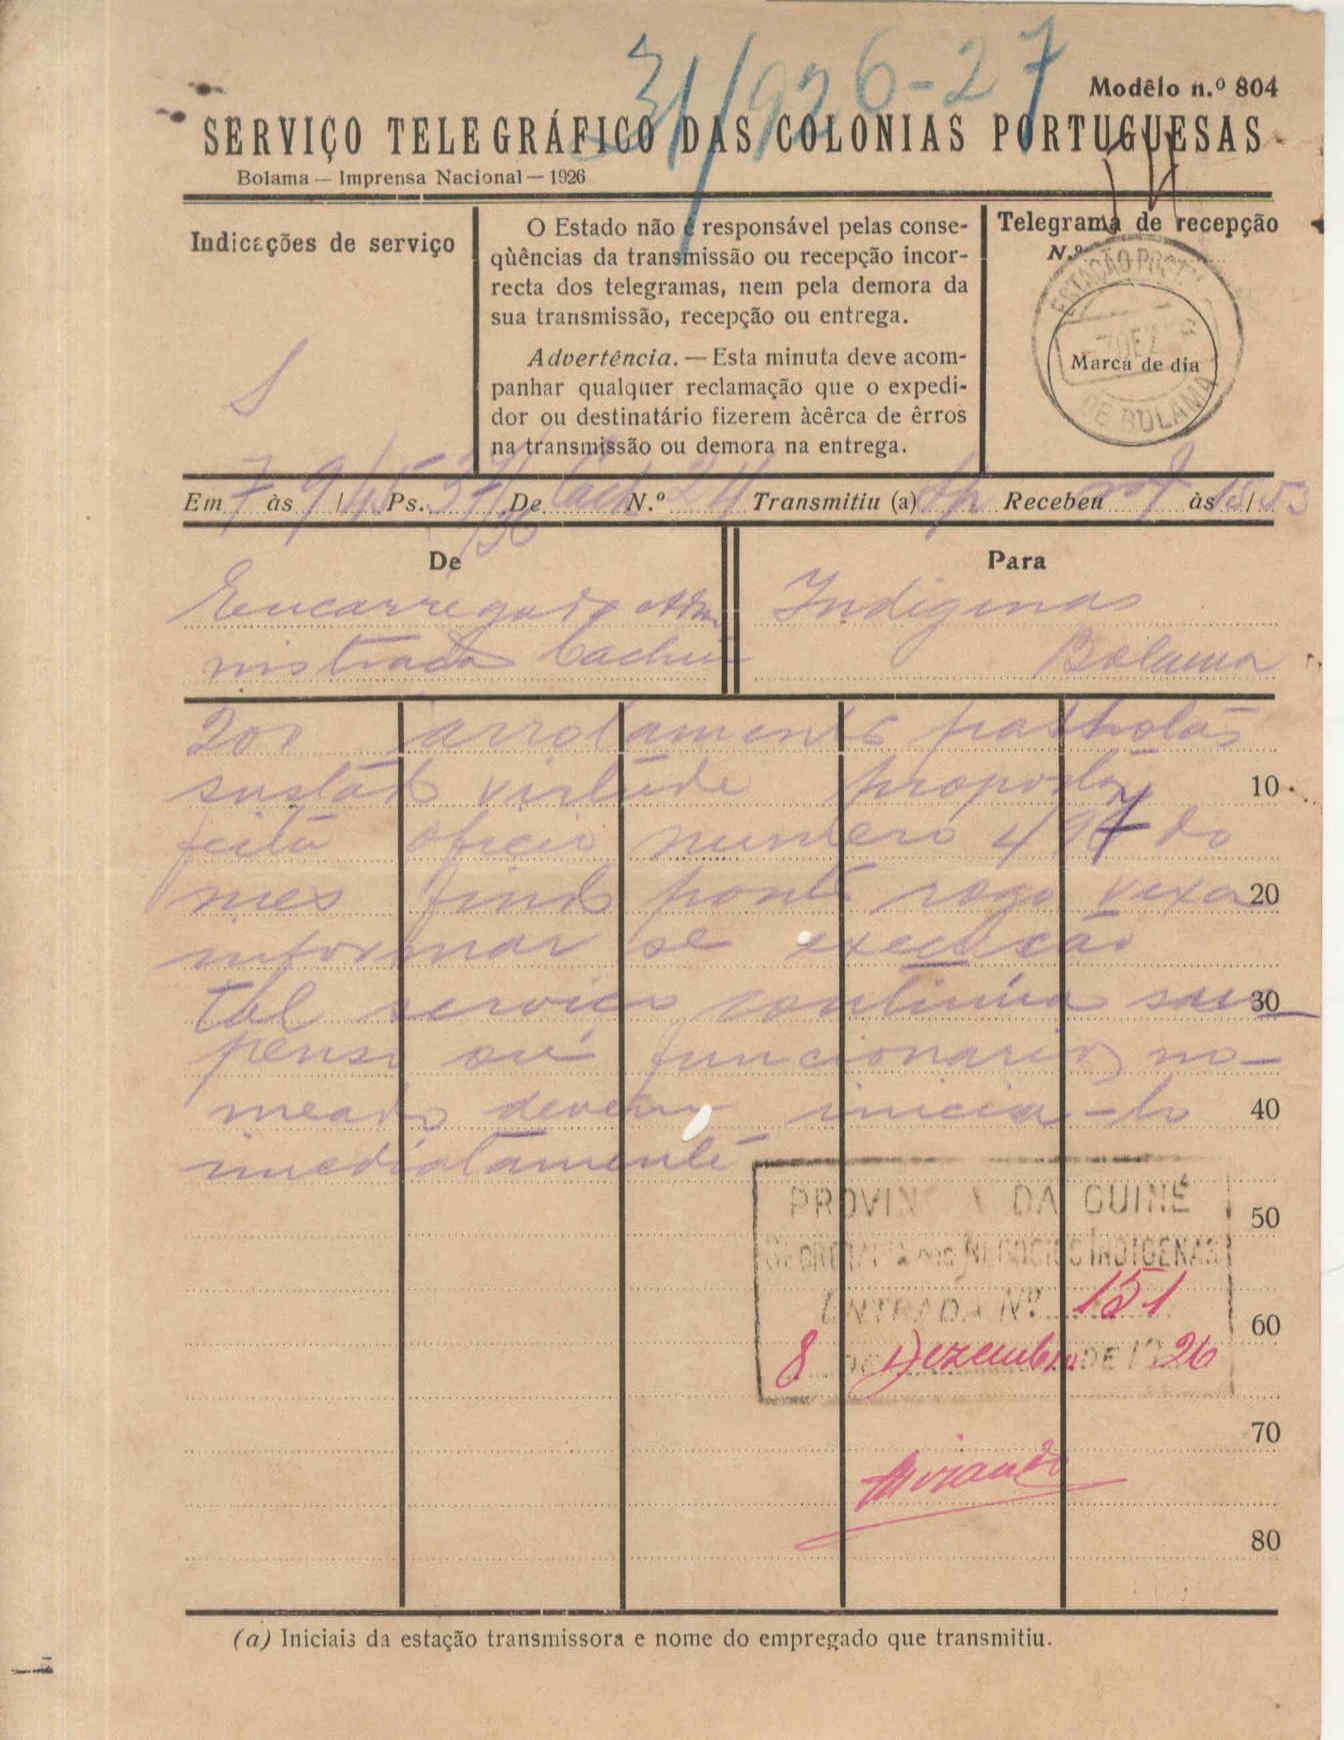 31/926-27
Modêlo n.º 804
SERVIÇO TELEGRÁFICO DAS COLONIAS PORTUGUESAS
Bolama — Imprensa Nacional — 1926
Indicações de serviço
S
O Estado não é responsável pelas conse-
qùências da transmissão ou recepção incor-
recta dos telegramas, nem pela demora da
sua transmissão, recepção ou entrega.
Advertência. — Esta minuta deve acom-
panhar qualquer reclamação que o expedi-
dor ou destinatário fizerem àcêrca de êrros
na transmissão ou demora na entrega.
Telegrama de recepção
N.º
ESTAÇÃO POSTAL
Marca de dia
DE BOLAMA
Em 7 às 9/45 Ps. 37/36 De Cach N.º 24 Transmitiu (a) Recebeu às 18/53
De
Encarregado Admi
nistração Cacheu
Para
Indigenas
Bolama
201 arrolamento palhotas
sustado virtude proposta
feita oficio numero 497 do
mes findo ponto rogo vexa
informar se execução
tal serviço continúa sus
penso ou funcionarios no-
meados devem inicia-lo
imediatamente
10
20
30
40
50
60
70
80
PROVINCIA DA GUINÉ
SECRETARIA DOS NEGOCIOS INDIGENAS
ENTRADA Nº 151
8 DE Dezembro DE 1926
Miranda
(a) Iniciais da estação transmissora e nome do empregado que transmitiu.